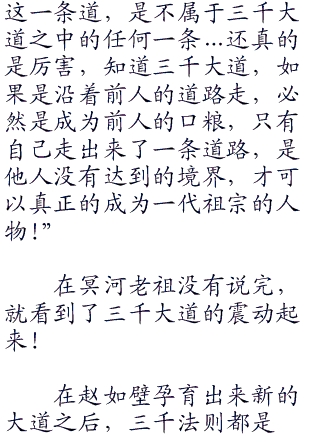 这一条道，是不属于三千大
道之中的任何一条...还真的
是厉害，知道三千大道，如
果是沿着前人的道路走，必
然是成为前人的口粮，只有
自己走出来了一条道路，是
他人没有达到的境界，才可
以真正的成为一代祖宗的人
物！”
在冥河老祖没有说完，
就看到了三千大道的震动起
来！
在赵如壁孕育出来新的
大道之后，三千法则都是